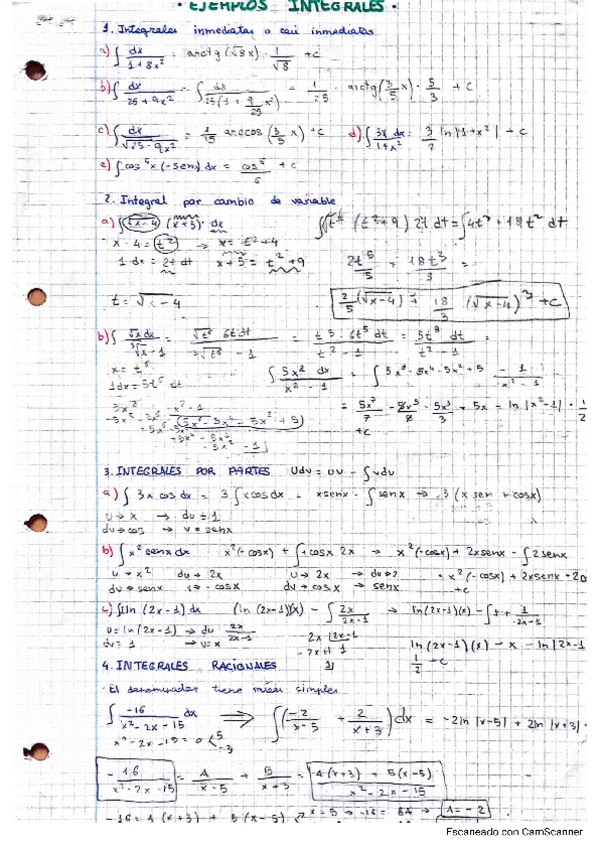 · EJEMPLOS INTEGRALES ·
1. Integrales inmediatas o casi inmediatas
a) ∫ dx / 1+8x² = arctg(√8x) · 1/√8 + c
b) ∫ dx / 25+9x² = ∫ dx / 25(1+ 9/25 x²) = 1/25 · arctg(3/5 x) · 5/3 + c
c) ∫ dx / √25-9x² = 1/15 arccos(3/5 x) + c d) ∫ 3x dx / 1+x² = 3/2 ln|1+x²| + c
e) ∫ cos⁵x (-senx) dx = cos⁶/6 + c
2. Integral por cambio de variable
a) ∫ √x-4 (x+5) · dx ∫ √t² (t²+9) 2t dt = ∫ 4t³ + 18t² dt
x-4 = t² → x = t²+4
1 dx = 2t dt x+5 = t²+9 2t⁵/5 + 18t³/3 =
t = √x-4 2/5 (√x-4) + 18/3 (√x-4)³ + c
b) ∫ √x dx
x = t⁶
∫ 5x² dx / x²-1
+c
3. INTEGRALES POR PARTES Udv = uv - ∫vdu
a) ∫ 3x cos dx = 3 ∫ x cos dx = xsenx - ∫ senx → 3 (x sen + cosx)
u → x → du = 1
dv → cos → v = senx
b) ∫ x² senx dx x²(-cosx) + ∫ +cosx 2x → x²(-cosx) + 2xsenx - ∫ 2senx
u → x² du → 2x u → 2x → du → 2 · x²(-cosx) + 2xsenx
dv → senx → -cosx dv → cosx → senx +c
c) ∫ ln (2x-1) dx (ln (2x-1))(x) - ∫ 2x / 2x-1 → ln(2x-1)(x) - ∫ 1 + 1 / 2x-1
u = ln(2x-1) → du 2x / 2x-1
dv = 1 → v = x ln(2x-1)(x) - x - ln|2x-1
1/2 + c
4. INTEGRALES RACIONALES
· El denominador tiene raíces simples
∫ -16 / x²-2x-15 dx ⟹ ∫ (-2 / x-5 + 2 / x+3) dx = -2ln|x-5| + 2ln|x+3|
x²-2x-15 = 0 < 5 -3
-16 / x²-2x-15 = A / x-5 + B / x+3 = A(x+3) + B(x-5) / x²-2x-15
-16 = A(x+3) + B(x-5) x=5 → -16 = 8A → A = -2
Escaneado con CamScanner